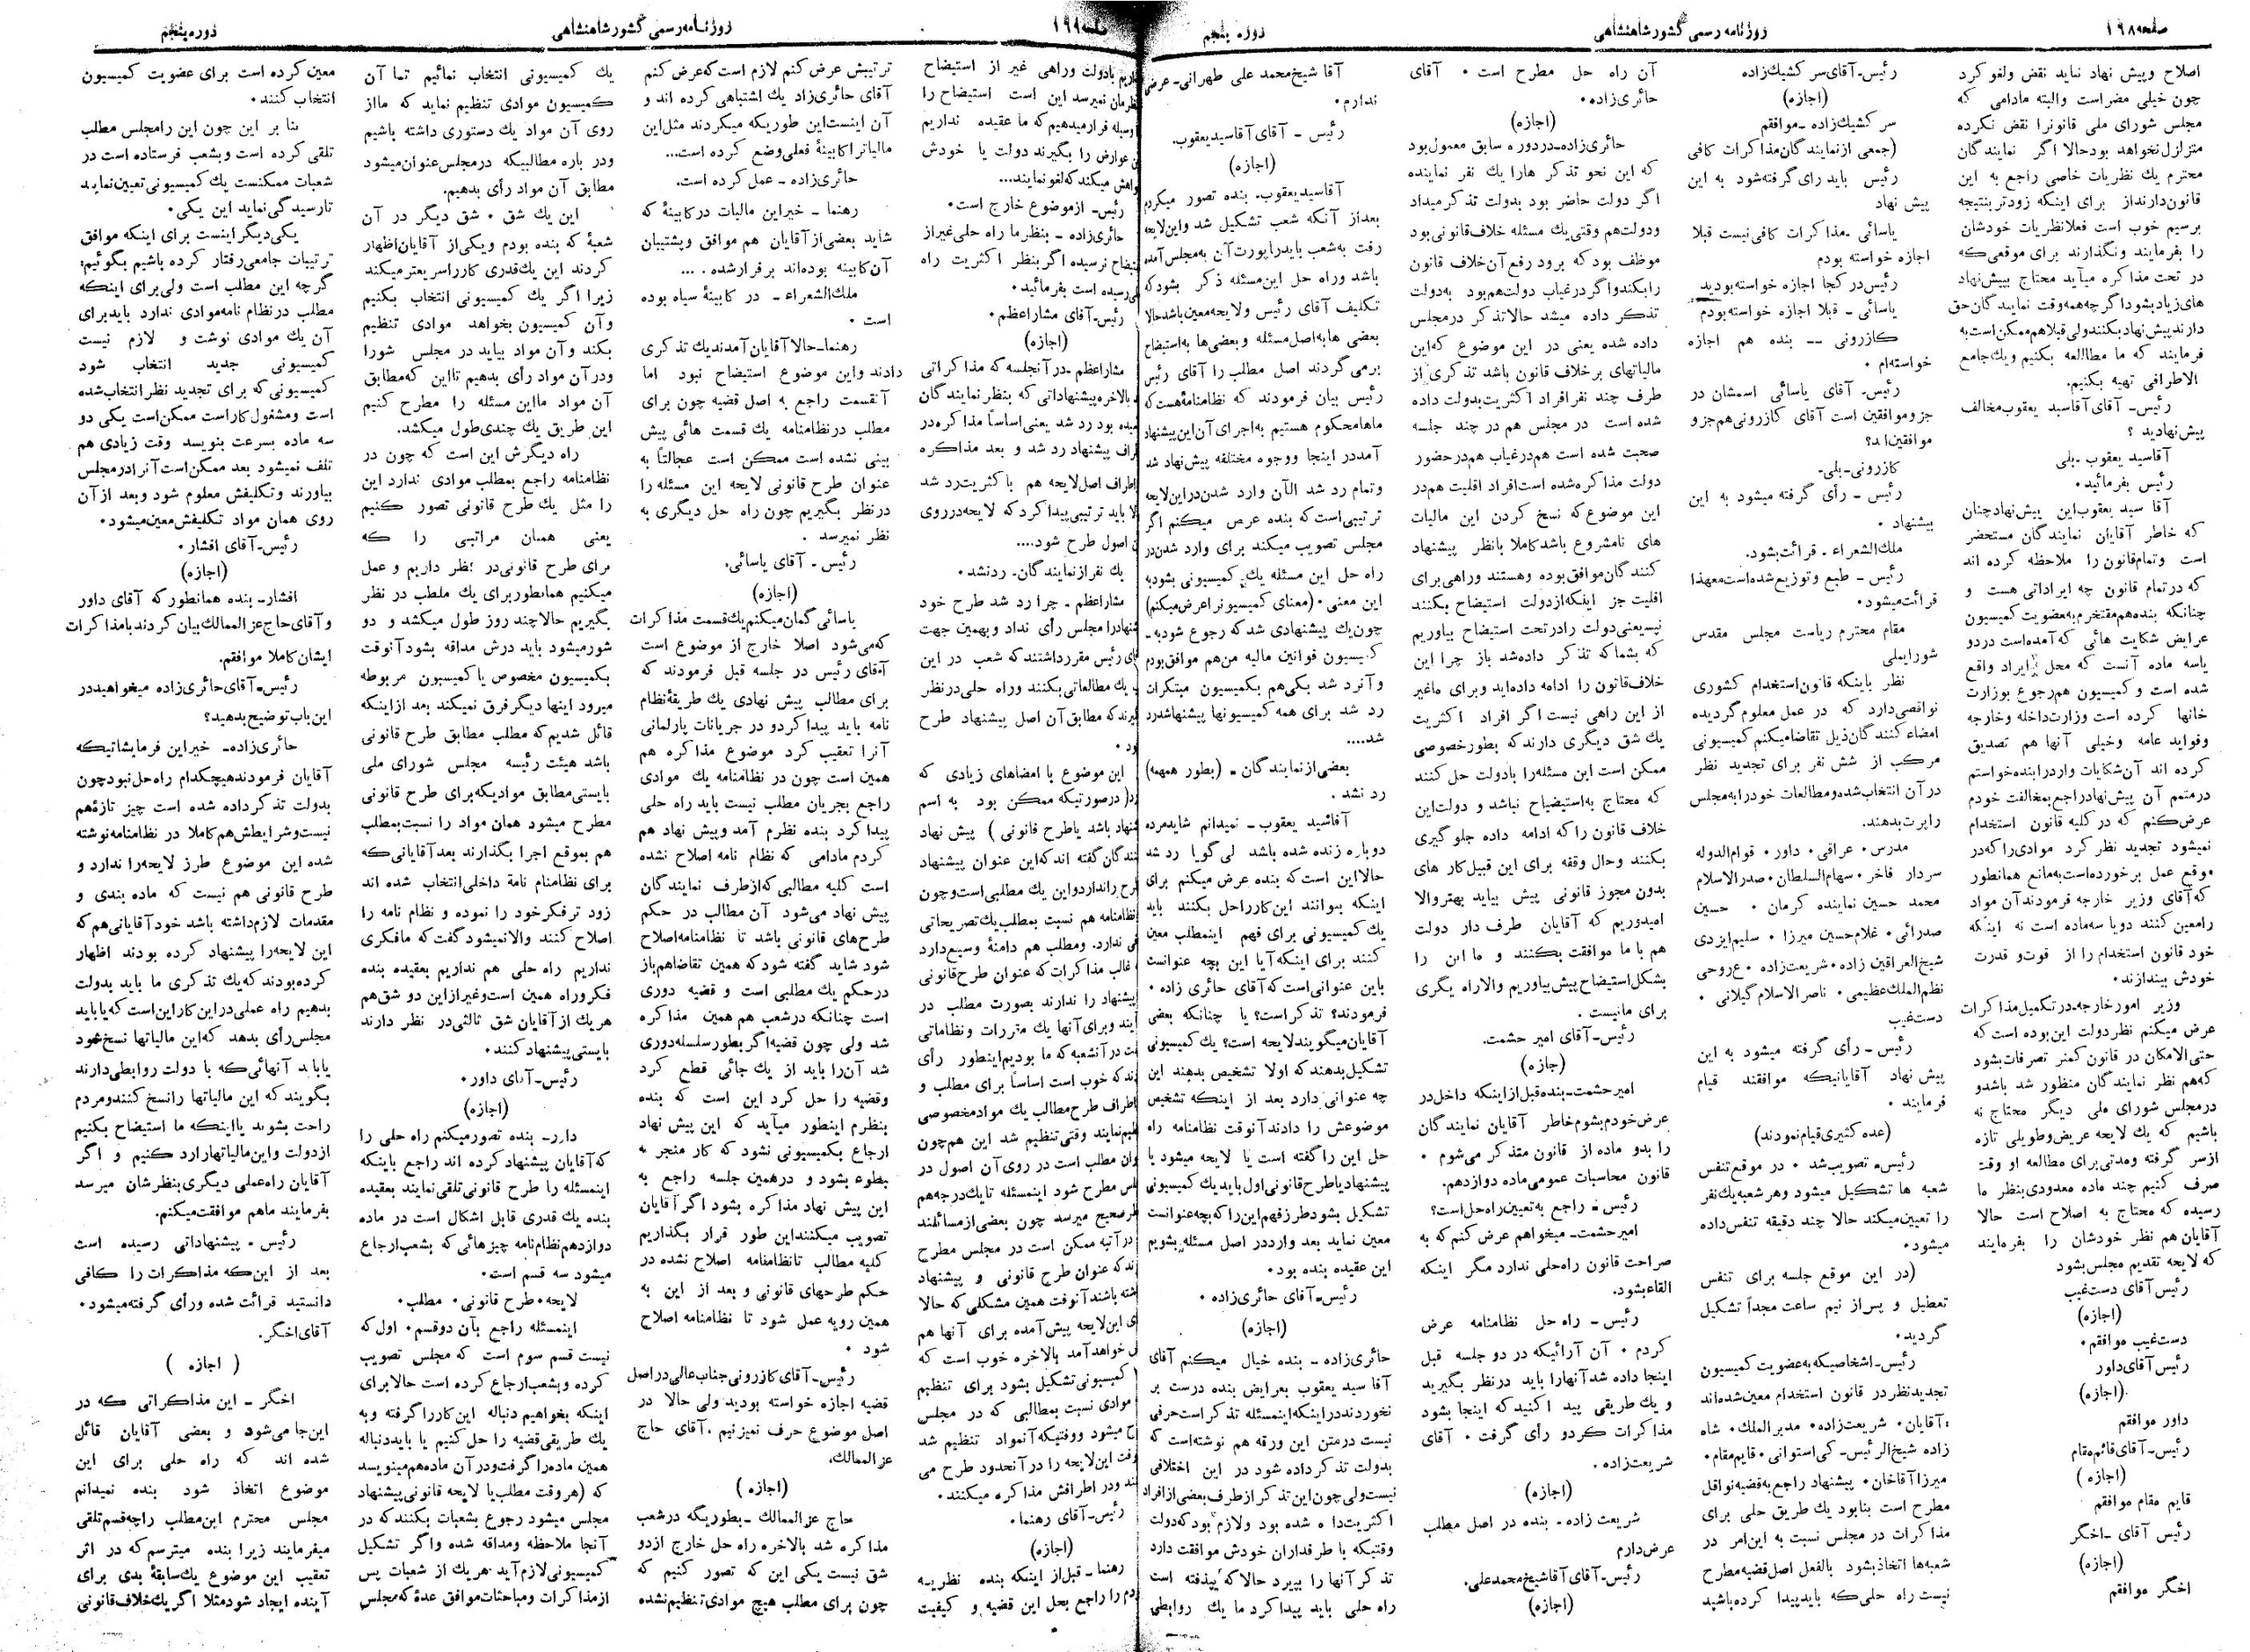 صفحه ۱۹۸
روزنامه رسمی کشور شاهنشاهی
دوره پنجم
اصلاح وپیش نهاد نماید نقض ولغو کرد
چون خیلی مضر است والبته مادامی که
مجلس شورای ملی قانونرا نقض نکرده
متزلزل نخواهد بود حالا اگر نمایندگان
محترم یك نظریات خاصی راجع به این
قانون دارند از برای اینکه زودتر بنتیجه
برسیم خوب است فعلا نظریات خودشان
را بفرمایند ونگذارند برای موقعی که
در تحت مذاکره میآید محتاج پیش نهاد
های زیاد بشود اگرچه همه وقت نمایندگان حق
دارند پیش نهاد بکنند ولی قبلا هم ممکن است به
فرمایند که ما مطالعه بکنیم ویك جامع
الاطرافی تهیه بکنیم.
رئیس- آقای آقاسید یعقوب مخالف
پیش نهادید ؟
آقاسید یعقوب -بلی
رئیس بفرمائید.
آقا سید یعقوب این پیش نهاد چنان
که خاطر آقایان نمایندگان مستحضر
است وتمام قانون را ملاحظه کرده اند
که در تمام قانون چه ایراداتی هست و
چنانکه بنده هم مفتخرم به عضویت کمیسیون
عرایض شکایت هائی که آمده است در دو
یاسه ماده آنست که محل ایراد واقع
شده است و کمیسیون هم رجوع بوزارت
خانها کرده است وزارت داخله وخارجه
وفواید عامه وخیلی آنها هم تصدیق
کرده اند آن شکایات وارد را بنده خواستم
در متمم آن پیش نهاد راجع بمخالفت خودم
عرض کنم که در کلیه قانون استخدام
نمیشود تجدید نظر کرد موادی را که در
موقع عمل برخورده است به مانع همانطور
که آقای وزیر خارجه فرمودند آن مواد
رامعین کنند دو یا سه ماده است نه اینکه
خود قانون استخدام را از قوت و قدرت
خودش بیندازند.
وزیر امور خارجه- در تکمیل مذاکرات
عرض میکنم نظر دولت این بوده است که
حتی الامکان در قانون کمتر تصرفات بشود
که هم نظر نمایندگان منظور شد باشد و
در مجلس شورای ملی دیگر محتاج نه
باشیم که یك لایحه عریض و طویلی تازه
از سر گرفته ومدتی برای مطالعه او وقت
صرف کنیم چند ماده معدودی بنظر ما
رسیده که محتاج به اصلاح است حالا
آقایان هم نظر خودشان را بفرمایند
که لایحه تقدیم مجلس بشود
رئیس آقای دست غیب
(اجازه)
دست غیب موافقم.
رئیس آقای داور
(اجازه)
داور موافقم
رئیس- آقای قائم مقام
(اجازه)
قایم مقام موافقم
رئیس آقای -اخگر
(اجازه)
اخگر موافقم
رئیس- آقای سر کشیك زاده
(اجازه)
سر کشیك زاده -موافقم
(جمعی از نمایندگان مذاکرات کافی
رئیس باید رای گرفته شود به این
پیش نهاد
یاسائی -مذاکرات کافی نیست قبلا
اجازه خواسته بودم
رئیس در کجا اجازه خواسته بودید
یاسائی - قبلا اجازه خواسته بودم
کازرونی -- بنده هم اجازه
خواسته ام .
رئیس- آقای یاسائی اسمشان در
جزو موافقین است آقای کازرونی هم جزو
موافقین اند؟
کازرونی -بلی-
رئیس - رأی گرفته میشود به این
پیشنهاد .
ملك الشعراء - قرائت بشود.
رئیس - طبع و توزیع شده است معهذا
قرائت میشود.
مقام محترم ریاست مجلس مقدس
شورایملی
نظر باینکه قانون استخدام کشوری
نواقصی دارد که در عمل معلوم گردیده
امضاء کنندگان ذیل تقاضا میکنم کمیسیونی
مرکب از شش نفر برای تجدید نظر
در آن انتخاب شده و مطالعات خود را به مجلس
راپرت بدهند.
مدرس . عراقی . داور . قوام الدوله
سردار فاخر . سهام السلطان . صدرالاسلام
محمد حسین نماینده کرمان . حسین
صدرائی . غلامحسین میرزا . سلیم ایزدی
شیخ العراقین زاده . شریعت زاده . عروجی
نظم الملك عظیمی . ناصر الاسلام گیلانی .
دست غیب
رئیس - رأی گرفته میشود به این
پیش نهاد آقایانیکه موافقند قیام
فرمایند .
(عده کثیری قیام نمودند)
رئیس- تصویب شد . در موقع تنفس
شعبه ها تشکیل میشود وهر شعبه یك نفر
را تعیین میکند حالا چند دقیقه تنفس داده
میشود.
(در این موقع جلسه برای تنفس
تعطیل و پس از نیم ساعت مجداً تشکیل
گردید.
رئیس- اشخاصیکه به عضویت کمیسیون
تجدید نظر در قانون استخدام معین شده اند
آقایان . شریعت زاده . مدیر الملك . شاه
زاده شیخ الرئیس- کی استوانی . قایم مقام .
میرزا آقاخان . پیشنهاد راجع به قضیه نواقل
مطرح است بنا بود یك طریق حلی برای
مذاکرات در مجلس نسبت به این امر در
شعبه ها اتخاذ بشود بالفعل اصل قضیه مطرح
نیست راه حلی که باید پیدا کرده باشید
آن راه حل مطرح است . آقای
حائری زاده .
(اجازه)
حائری زاده- در دوره سابق معمول بود
که این نحو تذکر هارا یك نفر نماینده
اگر دولت حاضر بود بدولت تذکر میداد
و دولت هم وقتی یك مسئله خلاف قانونی بود
موظف بود که برود رفع آن خلاف قانون
را بکند و اگر در غیاب دولت هم بود به دولت
تذکر داده میشد حالا تذکر در مجلس
داده شده یعنی در این موضوع که این
مالیاتهای بر خلاف قانون باشد تذکری از
طرف چند نفر افراد اکثریت بدولت داده
شده است در مجلس هم در چند جلسه
صحبت شده است هم در غیاب هم در حضور
دولت مذاکره شده است افراد اقلیت هم در
این موضوع که نسخ کردن این مالیات
های نامشروع باشد کاملا بانظر پیشنهاد
کنندگان موافق بوده وهستند وراهی برای
اقلیت جز اینکه از دولت استیضاح بکنند
نیست یعنی دولت را در تحت استیضاح بیاوریم
که بشما که تذکر داده شد باز چرا این
خلاف قانون را ادامه داده اید و برای ماغیر
از این راهی نیست اگر افراد اکثریت
یك شق دیگری دارند که بطور خصوصی
ممکن است این مسئله را بادولت حل کنند
که محتاج به استیضاح نباشد و دولت این
خلاف قانون را که ادامه داده جلوگیری
بکنند وحال وقفه برای این قبیل کار های
بدون مجوز قانونی پیش بیاید بهتر والا
امیدوریم که آقایان طرف دار دولت
هم با ما موافقت بکنند و ما این را
بشکل استیضاح پیش بیاوریم والا راه دیگری
برای مانیست .
رئیس- آقای امیر حشمت.
(جازه)
امیر حشمت- بنده قبل از اینکه داخل در
عرض خودم بشوم خاطر آقایان نمایندگان
را بدو ماده از قانون متذکر می شوم .
قانون محاسبات عمومی ماده دوازدهم.
رئیس- راجع به تعیین راه حل است؟
امیر حشمت- میخواهم عرض کنم که به
صراحت قانون راه حلی ندارد مگر اینکه
القاء بشود.
رئیس - راه حل نظامنامه عرض
کردم . آن آرائیکه در دو جلسه قبل
اینجا داده شد آنهارا باید در نظر بگیرید
و یك طریقی پید اکنید که اینجا بشود
مذاکرات کرد و رأی گرفت . آقای
شریعت زاده .
(اجازه)
شریعت زاده - بنده در اصل مطلب
عرض دارم
رئیس- آقای آقاشیخ محمد علی.
(اجازه)
آقا شیخ محمد علی طهرانی- عرضی
ندارم.
رئیس - آقای آقاسید یعقوب.
(اجازه)
آقاسید یعقوب- بنده تصور میکردم
بعد از آنکه شعب تشکیل شد واین لایحه
رفت به شعب باید راپورت آن به مجلس آمده
باشد وراه حل این مسئله ذکر بشود که
تکلیف آقای رئیس ولایحه معین باشد حالا
بعضی ها به اصل مسئله و بعضی ها به استیضاح
برمی گردند اصل مطلب را آقای رئیس
رئیس بیان فرمودند که نظامنامه هست که
ماها محکوم هستیم به اجرای آن این پیشنهاد
آمد در اینجا ووجوه مختلفه پیش نهاد شد
وتمام رد شد الآن وارد شدن در این لایحه
ترتیبی است که بنده عرض میکنم اگر
مجلس تصویب میکند برای وارد شدن در
راه حل این مسئله یك کمیسیونی بشود به
این معنی . (معنای کمیسیونرا عرض میکنم)
چون یك پیشنهادی شد که رجوع شود به -
کمیسیون قوانین مالیه من هم موافق بودم
وآنرد شد یکی هم بکمیسیون مبتکرات
رد شد برای همه کمیسیونها پیشنهاد شدرد
شد....
بعضی از نمایندگان - (بطور همهمه)
رد نشد .
آقاسید یعقوب - نمیدانم شاید مرده
دوباره زنده شده باشد لی گویا رد شد
حالا این است که بنده عرض میکنم برای
اینکه بتوانند این کار را حل بکنند باید
یك کمیسیونی برای فهم اینمطلب معین
کنند برای اینکه آیا این بچه عنوانست
باین عنوانی است که آقای حائری زاده .
فرمودند؟ تذکر است؟ یا چنانکه بعضی
آقایان میگویند لایحه است؟ یك کمیسیونی
تشکیل بدهند که اولا تشخیص بدهند این
چه عنوانی دارد بعد از اینکه تشخیص
موضوعش را دادند آنوقت نظامنامه راه
حل این را گفته است یا لایحه میشود یا
پیشنهاد یا طرح قانونی اول باید یك کمیسیونی
تشکیل بشود طرز فهم این را که بچه عنوانست
معین نماید بعد وارد در اصل مسئله بشویم
این عقیده بنده بود.
رئیس- آقای حائری زاده .
(اجازه)
حائری زاده - بنده خیال میکنم آقای
آقا سید یعقوب بعرایض بنده درست بر
نخوردند در اینکه اینمسئله تذکر است حرفی
نیست در متن این ورقه هم نوشته است که
بدولت تذکر داده شود در این اختلافی
نیست ولی چون این تذکر از طرف بعضی از افراد
اکثریت داه شده بود ولازم بود که دولت
وقتیکه با طرفداران خودش موافقت دارد
تذکر آنها را بپرد حالا که نپذفته است
راه حلی باید پیدا کرد ما یك روابطی
روزنامه رسمی کشور شاهنشاهی
دوره پنجم
بادولت وراهی غیر از استیضاح
نمیرسد این است استیضاح را
وسیله قرار میدهیم که ما عقیده نداریم
عوارض را بگیرند دولت یا خودش
میکند که لغو نمایند...
رئیس- از موضوع خارج است.
حائری زاده - بنظر ما راه حلی غیر از
نرسیده اگر بنظر اکثریت راه
رسیده است بفرمائید.
رئیس- آقای مشار اعظم .
(اجازه)
مشار اعظم -در آنجلسه که مذاکراتی
بالاخره پیشنهاداتی که بنظر نمایندگان
بود رد شد یعنی اساساً مذاکره در
پیشنهاد رد شد و بعد مذاکره
اطراف اصل لایحه هم باکثریت رد شد
باید ترتیبی پیدا کرد که لایحه در روی
اصول طرح شود....
یك نفر از نمایندگان- رد نشد .
مشار اعظم - چرا رد شد طرح خود
مجلس رأی نداد وبهمین جهت
رئیس مقرر داشتند که شعب در این
یك مطالعاتی بکنند وراه حلی در نظر
که مطابق آن اصل پیشنهاد طرح
این موضوع با امضاهای زیادی که
درصورتیکه ممکن بود به اسم
باشد یا طرح قانونی ) پیش نهاد
گفته اند که این عنوان پیشنهاد
را ندارد و این یك مطلبی است وچون
نظامنامه هم نسبت بمطلب یك تصریحاتی
ندارد. ومطلب هم دامنهٔ وسیع دارد
غالب مذاکرات که عنوان طرح قانونی
پیشنهاد را ندارند بصورت مطلب در
وبرای آنها یك مقررات و نظاماتی
در آنشعبه که ما بودیم اینطور رأی
که خوب است اساساً برای مطلب و
اطراف طرح مطالب یك مواد مخصوصی
نمایند وقتی تنظیم شد این هم چون
مطلب است در روی آن اصول در
مطرح شود اینمسئله تا یك درجه هم
صحیح میرسد چون بعضی از مسائلند
در آتیه ممکن است در مجلس مطرح
که عنوان طرح قانونی و پیشنهاد
باشند آنوقت همین مشکلی که حالا
این لایحه پیش آمده برای آنها هم
خواهد آمد بالاخره خوب است که
کمیسیونی تشکیل بشود برای تنظیم
موادی نسبت بمطالبی که در مجلس
میشود ووقتیکه آنمواد تنظیم شد
این لایحه را در آنحدود طرح می
ودر اطرافش مذاکره میکنند.
رئیس- آقای رهنما.
(اجازه)
رهنما- قبل از اینکه بنده نظریه
را راجع بحل این قضیه و کیفیت
ترتیبش عرض کنم لازم است که عرض کنم
آقای حائری زاد یك اشتباهی کرده اند و
آن اینست این طوریکه میکردند مثل این
مالیاترا کابینهٔ فعلی وضع کرده است...
حائری زاده - عمل کرده است.
رهنما - خیر این مالیات در کابینهٔ که
شاید بعضی از آقایان هم موافق و پشتیبان
آن کابینه بوده اند برقرار شده . ...
ملك الشعراء - در کابینهٔ سیاه بوده
است .
رهنما- حالا آقایان آمدند یك تذکری
دادند و این موضوع استیضاح نبود اما
آنقسمت راجع به اصل قضیه چون برای
مطلب در نظامنامه یك قسمت هائی پیش
بینی نشده است ممکن است عجالتاً به
عنوان طرح قانونی لایحه این مسئله را
در نظر بگیریم چون راه حل دیگری به
نظر نمیرسد .
رئیس - آقای یاسائی.
(اجازه)
یاسائی گمان میکنم یك قسمت مذاکرات
که می شود اصلا خارج از موضوع است
آقای رئیس در جلسه قبل فرمودند که
برای مطالب پیش نهادی یك طریقهٔ نظام
نامه باید پیدا کرد و در جریانات پارلمانی
آنرا تعقیب کرد موضوع مذاکره هم
همین است چون در نظامنامه یك موادی
راجع بجریان مطلب نیست باید راه حلی
پیدا کرد بنده نظرم آمد وپیش نهاد هم
کردم مادامی که نظام نامه اصلاح نشده
است کلیه مطالبی که از طرف نمایندگان
پیش نهاد می شود آن مطالب در حکم
طرح های قانونی باشد تا نظامنامه اصلاح
شود شاید گفته شود که همین تقاضا هم باز
در حکم یك مطلبی است و قضیه دوری
است چنانکه در شعب هم همین مذاکره
شد ولی چون قضیه اگر بطور سلسله دوری
شد آن را باید از یك جائی قطع کرد
وقضیه را حل کرد این است که بنده
بنظرم اینطور میآید که این پیش نهاد
ارجاع بکمیسیونی نشود که کار منجر به
بطوء بشود و در همین جلسه راجع به
این پیش نهاد مذاکره بشود اگر آقایان
تصویب میکنند این طور قرار بگذاریم
کلیه مطالب تا نظامنامه اصلاح نشده در
حکم طرحهای قانونی و بعد از این به
همین رویه عمل شود تا نظامنامه اصلاح
شود .
رئیس- آقای کازرونی جناب عالی در اصل
قضیه اجازه خواسته بودید ولی حالا در
اصل موضوع حرف نمیزنیم . آقای حاج
عز الممالك.
(اجازه)
حاج عز الممالك -بطوریکه در شعب
مذاکره شد بالاخره راه حل خارج از دو
شق نیست یکی این که تصور کنیم که
چون برای مطلب هیچ موادی تنظیم نشده
یك کمیسیونی انتخاب نمائیم تا آن
کمیسیون موادی تنظیم نماید که ما از
روی آن مواد یك دستوری داشته باشیم
ودر باره مطالبیکه در مجلس عنوان میشود
مطابق آن مواد رأی بدهیم.
این یك شق . شق دیگر در آن
شعبهٔ که بنده بودم ویکی از آقایان اظهار
کردند این یك قدری کار را سریعتر میکند
زیرا اگر یك کمیسیونی انتخاب بکنیم
وآن کمیسیون بخواهد موادی تنظیم
بکند وآن مواد بیاید در مجلس شورا
ودر آن مواد رأی بدهیم تا این که مطابق
آن مواد ما این مسئله را مطرح کنیم
این طریق یك چندی طول میکشد.
راه دیگرش این است که چون در
نظامنامه راجع بمطلب موادی ندارد این
را مثل یك طرح قانونی تصور کنیم
یعنی همان مراتبی را که
برای طرح قانونی در نظر داریم و عمل
میکنیم همانطور برای یك ملطب در نظر
بگیریم حالا چند روز طول میکشد و دو
شور میشود باید درش مداقه بشود آنوقت
بکمیسیون مخصوص یا کمیسیون مربوطه
میرود اینها دیگر فرق نمیکند بعد از اینکه
قائل شدیم که مطلب مطابق طرح قانونی
باشد هیئت رئیسه مجلس شورای ملی
بایستی مطابق موادیکه برای طرح قانونی
مطرح میشود همان مواد را نسبت بمطلب
هم بموقع اجرا بگذارند بعد آقایانی که
برای نظامنام نامهٔ داخلی انتخاب شده اند
زود تر فکر خود را نموده و نظام نامه را
اصلاح کنند والا نمیشود گفت که مافکری
نداریم راه حلی هم نداریم بعقیده بنده
فکر وراه همین است و غیر از این دو شق هم
هر یك از آقایان شق ثالثی در نظر دارند
بایستی پیشنهاد کنند.
رئیس- آقای داور .
(اجازه)
داور- بنده تصور میکنم راه حلی را
که آقایان پیشنهاد کرده اند راجع باینکه
اینمسئله را طرح قانونی تلقی نمایند بعقیده
بنده یك قدری قابل اشکال است در ماده
دوازدهم نظام نامه چیز هائی که بشعب ارجاع
میشود سه قسم است.
لایحه . طرح قانونی . مطلب .
اینمسئله راجع بآن دو قسم . اول که
نیست قسم سوم است که مجلس تصویب
کرده و بشعب ارجاع کرده است حالا برای
اینکه بخواهیم دنباله این کار را گرفته وبه
یك طریقی قضیه را حل کنیم یا باید دنباله
همین ماده را گرفت و در آن ماده هم مینویسد
که (هر وقت مطلب یا لایحه قانونی پیشنهاد
مجلس میشود رجوع بشعبات بکنند که در
آنجا ملاحظه ومداقه شده واگر تشکیل
کمیسیونی لازم آید- هریك از شعبات پس
از مذاکرات و مباحثات موافق عدهٔ که مجلس
معین کرده است برای عضویت کمیسیون
انتخاب کنند.
بنا بر این چون این را مجلس مطلب
تلقی کرده است وبشعب فرستاده است در
شعبات ممکنست یك کمیسیونی تعیین نماید
تا رسیدگی نماید این یکی.
یکی دیگر اینست برای اینکه موافق
ترتیبات جامعی رفتار کرده باشیم بگوئیم:
گرچه این مطلب است ولی برای اینکه
مطلب در نظام نامه موادی ندارد باید برای
آن یك موادی نوشت و لازم نیست
کمیسیونی جدید انتخاب شود
کمیسیونی که برای تجدید نظر انتخاب شده
است ومشغول کار است ممکن است یکی دو
سه ماده بسرعت بنویسد وقت زیادی هم
تلف نمیشود بعد ممکن است آنرا در مجلس
بیاورند وتکلیفش معلوم شود وبعد از آن
روی همان مواد تکلیفش معین میشود.
رئیس- آقای افشار .
(اجازه)
افشار- بنده همانطور که آقای داور
و آقای حاج عز الممالك بیان کردند با مذاکرات
ایشان کاملا موافقم.
رئیس- آقای حائری زاده میخواهید در
این باب توضیح بدهید؟
حائری زاده- خیر این فرمایشاتیکه
آقایان فرمودند هیچکدام راه حل نبود چون
بدولت تذکر داده شده است چیز تازهٔ هم
نیست و شرایطش هم کاملا در نظامنامه نوشته
شده این موضوع طرز لایحه را ندارد و
طرح قانونی هم نیست که ماده بندی و
مقدمات لازم داشته باشد خود آقایانی هم که
این لایحه را پیشنهاد کرده بودند اظهار
کرده بودند که یك تذکری ما باید بدولت
بدهیم راه عملی در این کار این است که یا باید
مجلس رأی بدهد که این مالیاتها نسخ شود
یا باید آنهائی که با دولت روابطی دارند
بگویند که این مالیاتها را نسخ کنند و مردم
راحت بشوند یا اینکه ما استیضاح بکنیم
از دولت واین مالیاتها را رد کنیم و اگر
آقایان راه عملی دیگری بنظرشان میرسد
بفرمایند ماهم موافقت میکنم.
رئیس - پیشنهاداتی رسیده است
بعد از این که مذاکرات را کافی
دانستید قرائت شده و رأی گرفته میشود.
آقای اخگر.
( اجازه )
اخگر - این مذاکراتی که در
این جا می شود و بعضی آقایان قائل
شده اند که راه حلی برای این
موضوع اتخاذ شود بنده نمیدانم
مجلس محترم این مطلب راچه قسم تلقی
میفرمایند زیرا بنده میترسم که در اثر
تعقیب این موضوع یك سابقهٔ بدی برای
آینده ایجاد شود مثلا اگر یك خلاف قانونی